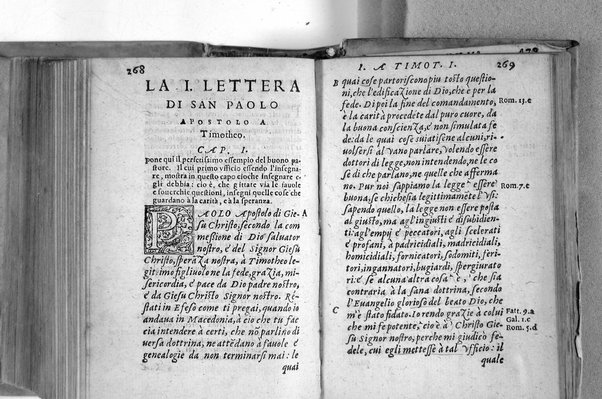 268
LA I. LETTERA
DI SAN PAOLO
APOSTOLO A
Timotheo.
CAP. I.
pone quì il perfettissimo essempio del buono pa
store. Il cui primo ufficio essendo l'insegna-
re, mostra in questo capo cioche insegnare e
gli debbia: cio è, che gittate via le fauole
e souerchie questioni, insegni quelle cose che
guardano à la carità, e à la speranza.
PAOLO Apostolo di Gie- A
sù Christo, secondo la com
messione di Dio saluator
nostro, e del Signor Giesù
Christo, sperāza nostra, à Timotheo le
gitimo figliuolo ne la fede, grazia, mi-
sericordia, e pace da Dio padre nostro,
e da Giesu Christo Signor nostro. Re-
stati in Efeso come ti pregai, quando io
andaua in Macedonia, à cio che tu fa
cia intendere à certi, che nō parlino di
uersa dottrina, ne attēdano à fauole e
genealogie da non terminarsi mai: le
quai
I. A TIMOT. I. 269
B quai cose partoriscono piu tosto questio-
ni, che l'edificazione di Dio, che è per la
fede. Di poi la fine del comandamento, Rom. 13.e
è la carità procedete dal puro cuore, da
la buona conscienza, e non simulata fe
de: da le quai cose suiatisene alcuni, ri-
uolsersi al vano parlare, volendo essere
dottori di legge, non intendendo, ne le co
se di che parlano, ne quelle che afferma
no. Pur noi sappiamo la legge essere Rom. 7.c
buona, se chichesia legittimamēte l'usi:
sapendo quello, la legge non essere posta
al giusto, ma agl'ingiusti e disubidien-
ti: agl'empij e peccatori, agli scelerati
e profani, à padricidiali, madricidiali,
homicidiali, fornicatori, sodomiti, feri-
tori, ingannatori, bugiardi, spergiurato
ri: e se alcuna altra cosa è, che sia
contraria à la sana dottrina, secondo
l'Euangelio glorioso del beato Dio, che
C m'è stato fidato. Io rendo grazie à colui Fatt. 9.a
che mi fe potente, cio è à Christo Gie- Gal. 1.c
sù Signor nostro, perche mi giudicò fe- Rom. 5.d
dele, cui egli messe à tal vfficio: il
quale